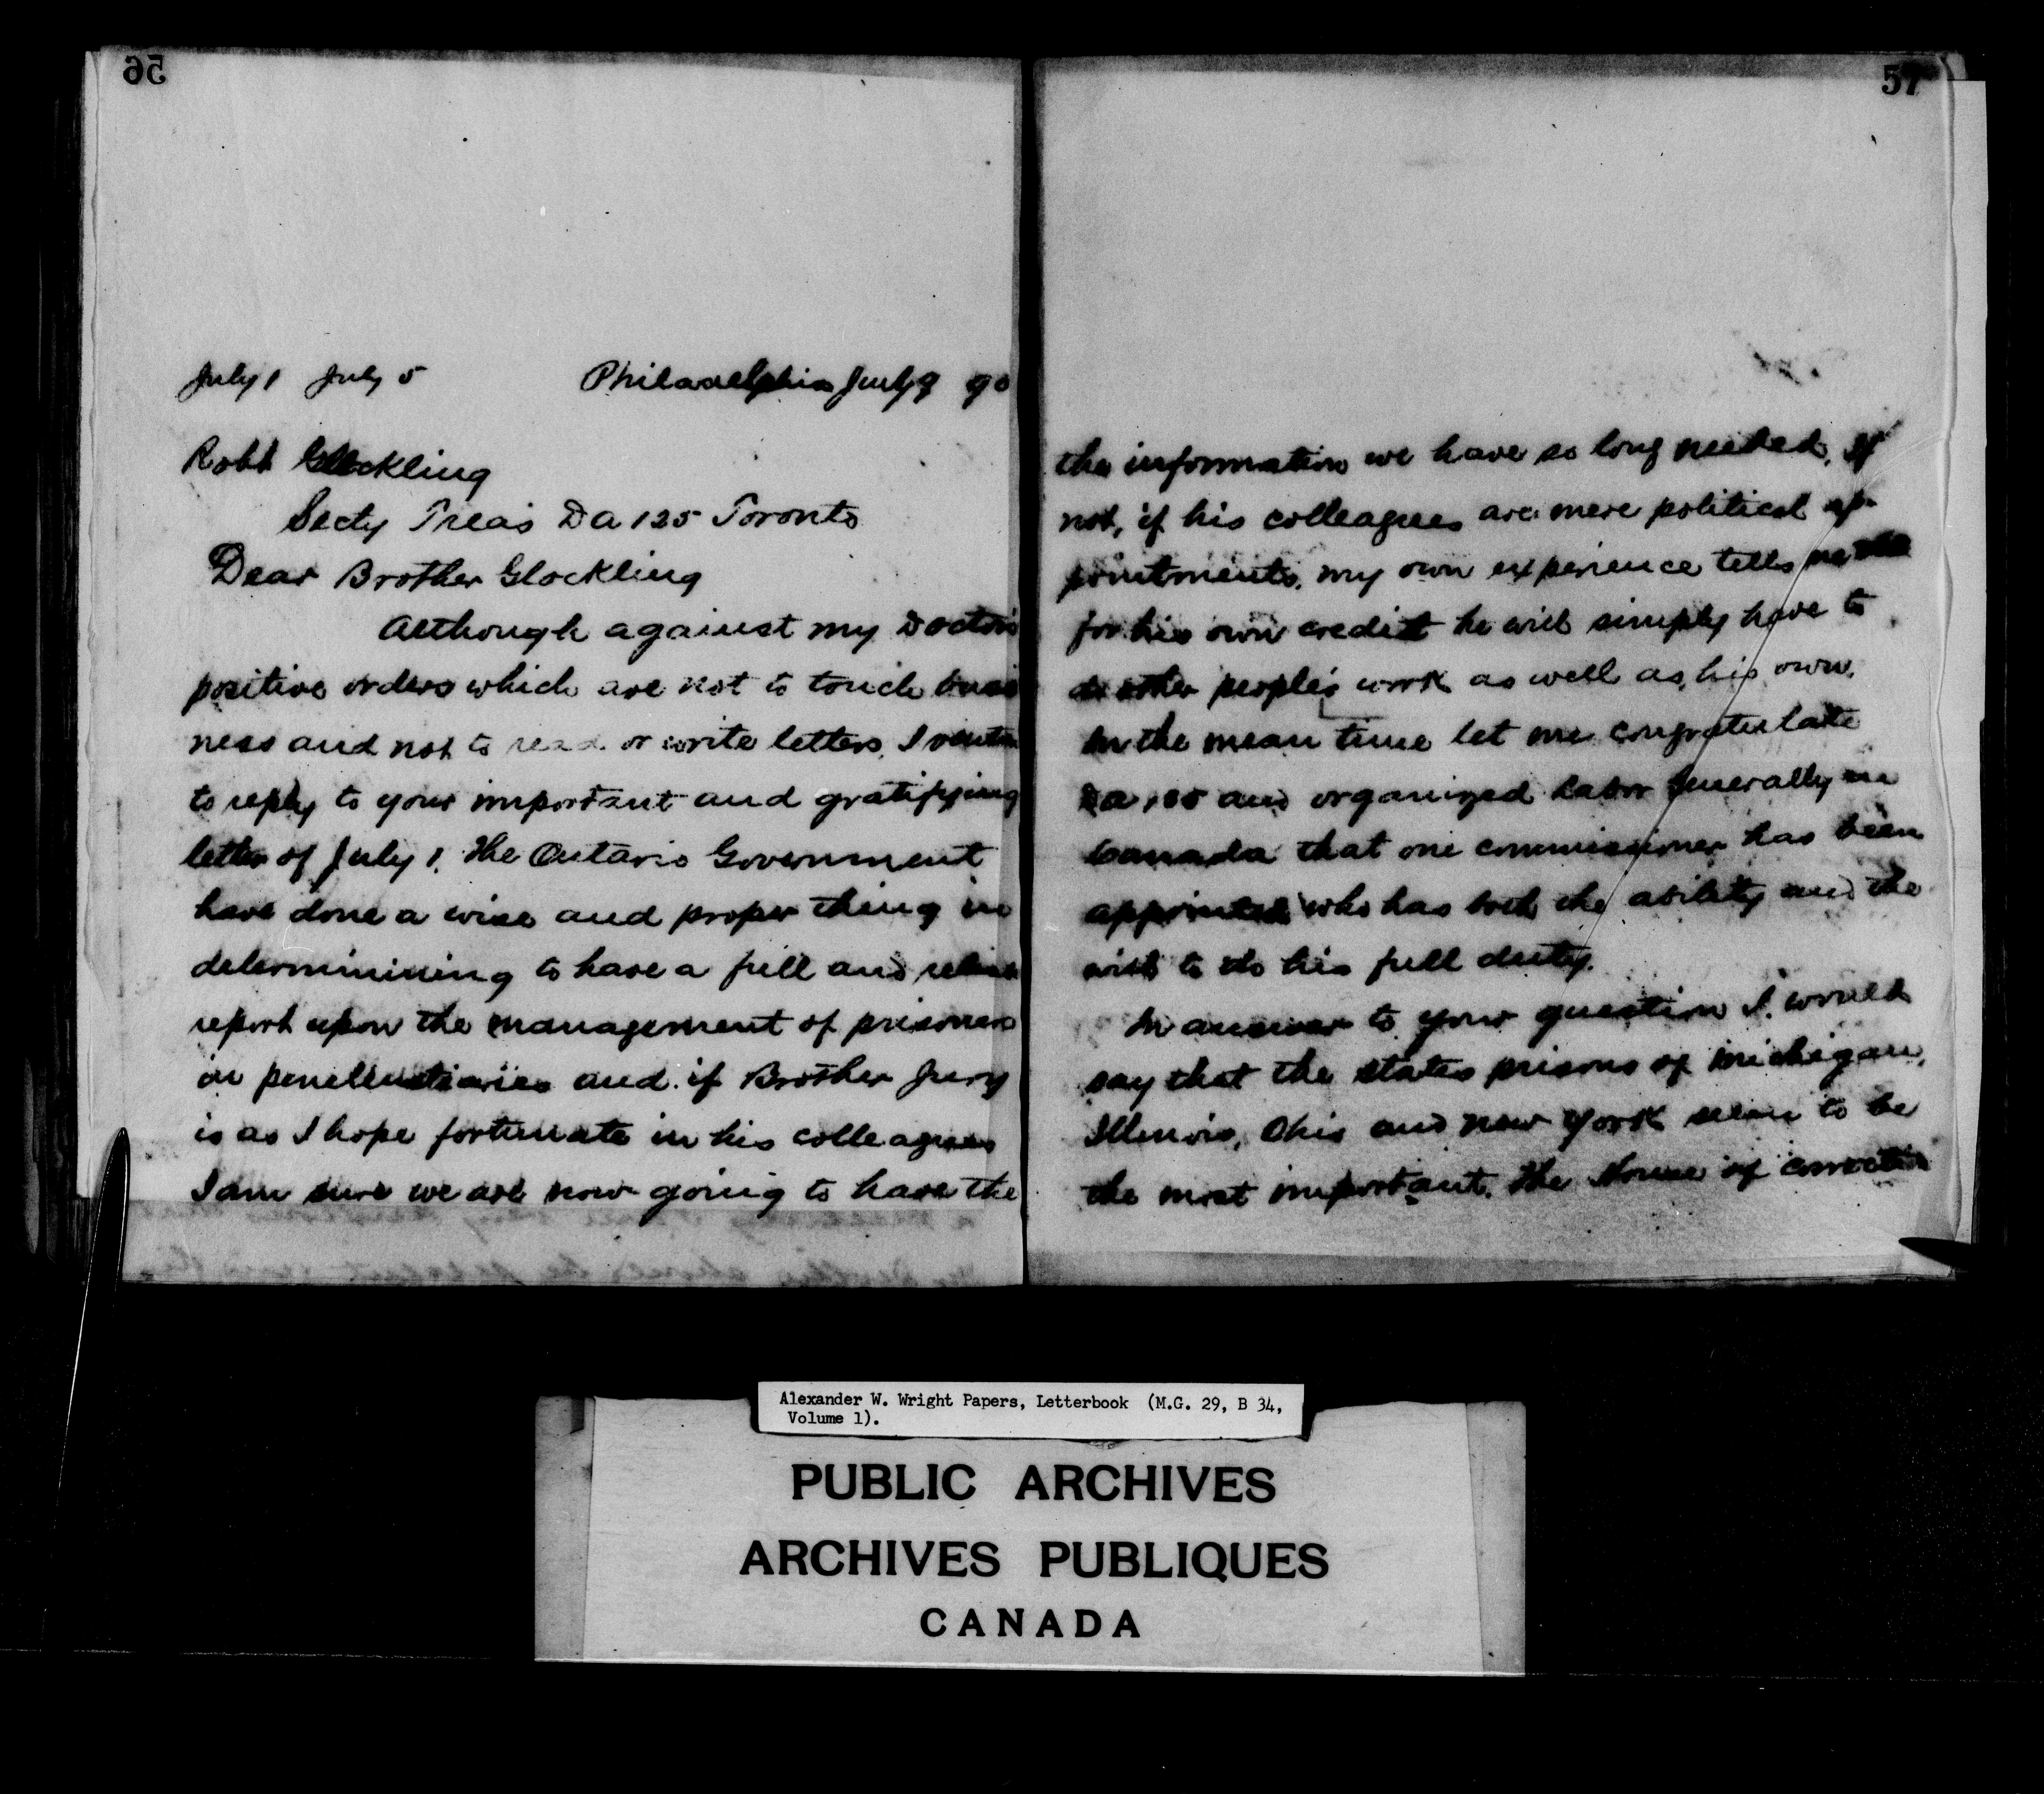 56
July 1 July 5 Philadelphia July 9 90
Robt Glockling
Secty Treas DA 125 Toronto
Dear Brother Glockling
Although against my Doctors
positive orders which are not to touch busi
ness and not to read or write letters, I
to reply to your important and gratifying
letter of July 1. The Ontario Government
have done a wise and proper thing in
determinining to have a full and
report upon the management of prisoners
in penitentiaries and if Brother Jury
is as I hope fortunate in his colleagues
I am sure we are now going to have the
57
the information we have so long needed. If
not, if his colleagues are mere political ap-
pointments, my own experience tells me
for his own credit he will simply have to
do other people's work as well as his own.
In the mean time let me congratulate
DA 125 and organized labor generally in
Canada that one commissioner has been
appointed who has both the ability and the
wish to do his full duty.
In answer to your question I would
say that the states prisons of Michigan,
Illinois, Ohio and New York seem to be
the most important. The House of correction
Alexander W. Wright Papers, Letterbook (M.G. 29, B 34,
Volume 1).
PUBLIC ARCHIVES
ARCHIVES PUBLIQUES
CANADA